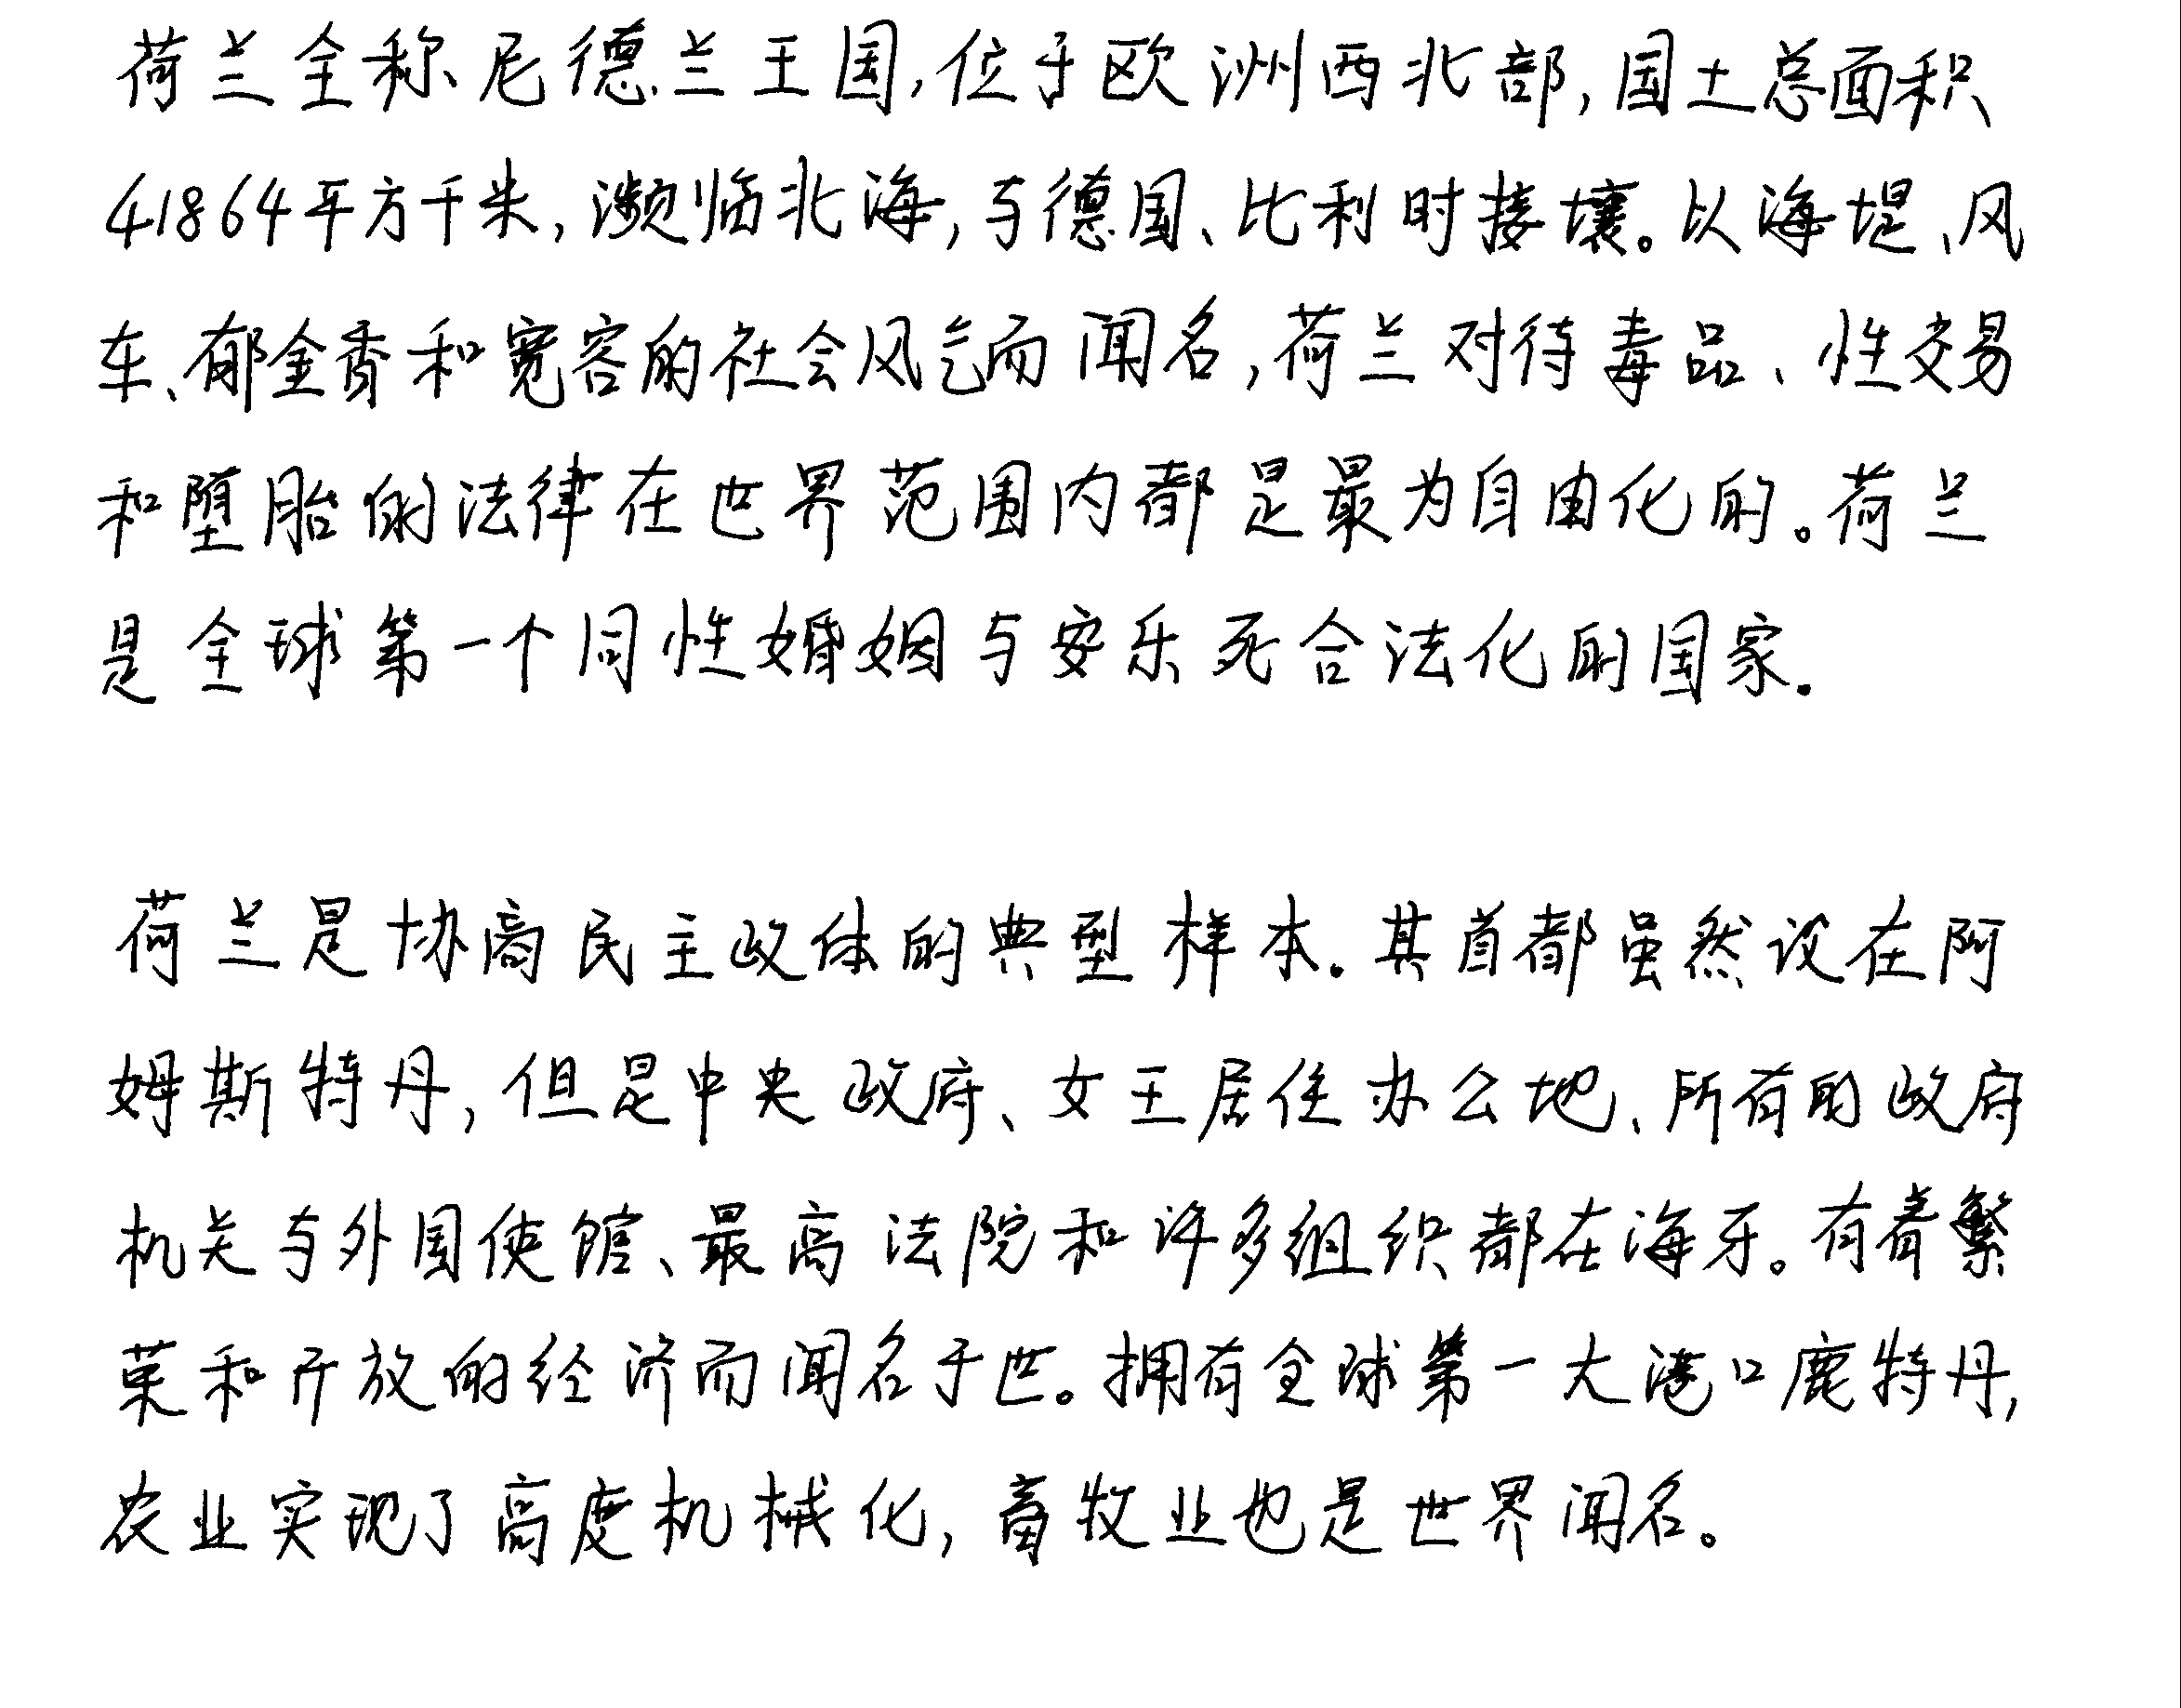 荷兰全称尼德兰王国,位于欧洲西北部,国土总面积
41864平方千米,濒临北海,与德国、比利时接壤。以海堤、风
车、郁金香和宽容的社会风气而闻名,荷兰对待毒品、性交易
和堕胎的法律在世界范围内都是最为自由化的。荷兰
是全球第一个同性婚姻与安乐死合法化的国家.
荷兰是协商民主政体的典型样本.其首都虽然设在阿
姆斯特丹,但是中央政府、女王居住办公地、所有的政府
机关与外国使馆、最高法院和许多组织都在海牙。有着繁
荣和开放的经济而闻名于世。拥有全球第一大港口鹿特丹,
农业实现了高度机械化,畜牧业也是世界闻名。